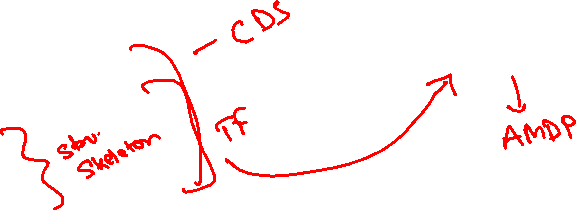 CDS
TF
Stru.
Skeleton
AMDP